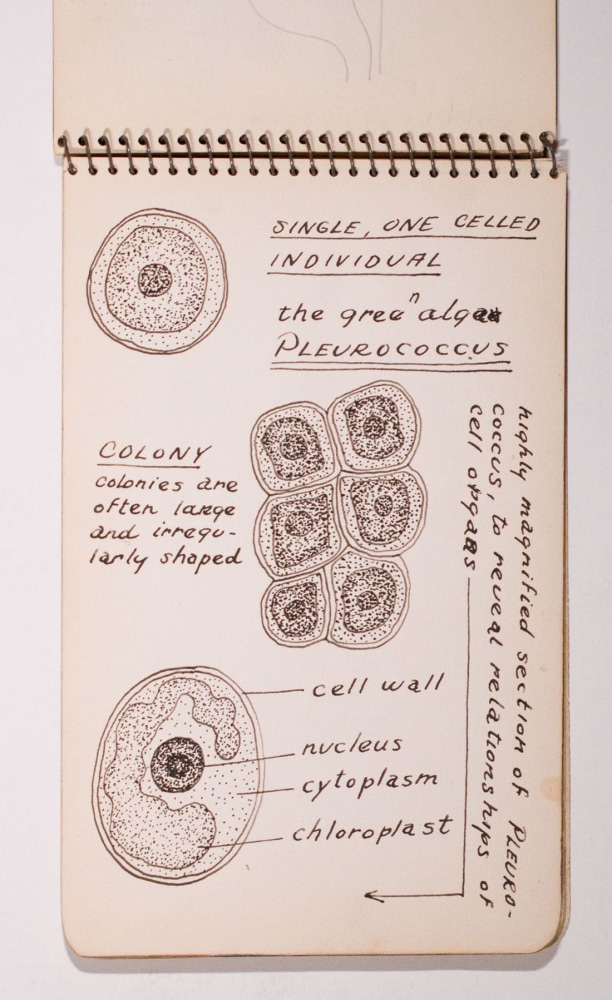 SINGLE, ONE CELLED
INDIVIDUAL
the green algae
PLEUROCOCCUS
COLONY
colonies are
often large
and irregu-
larly shaped
highly magnified section of PLEURO-
COCCUS, to reveal relationships of
cell organs
cell wall
nucleus
cytoplasm
chloroplast